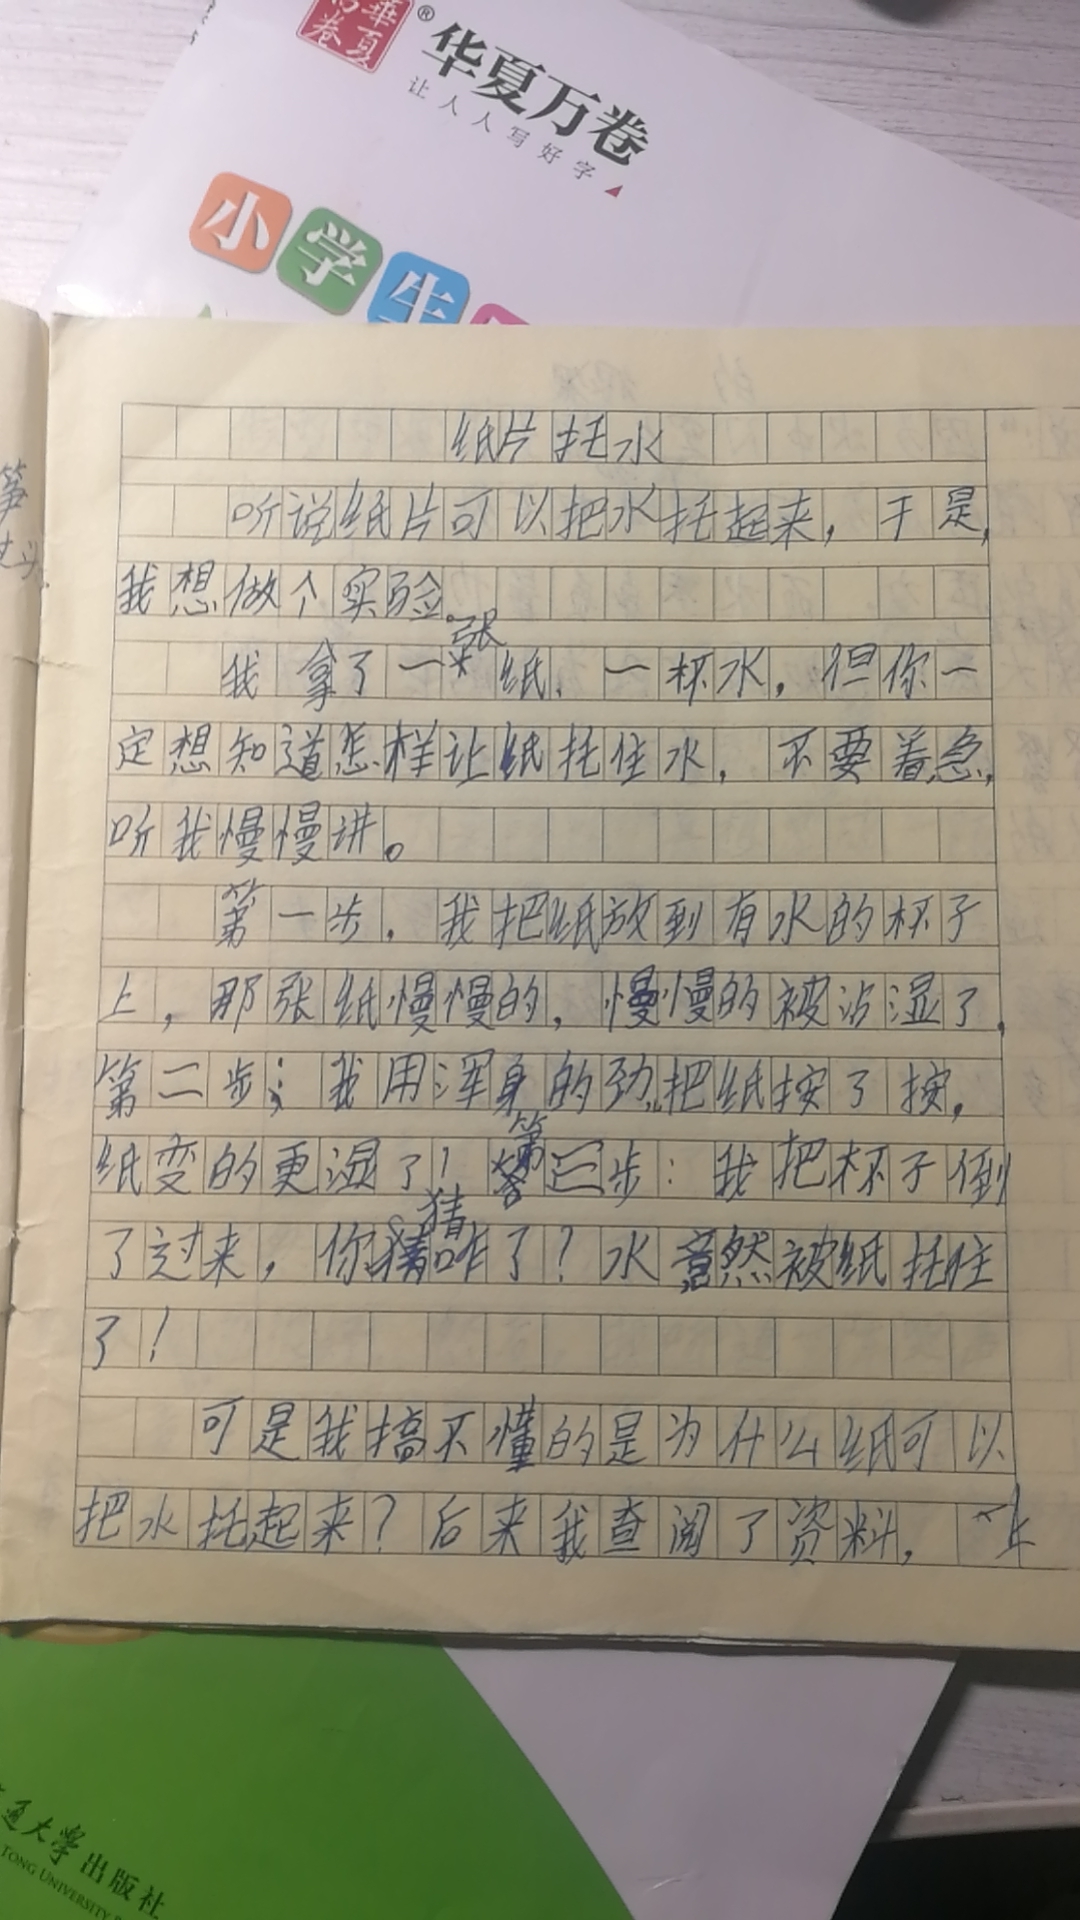 華夏万卷®
华夏万卷
让人人写好字
小学生
纸片托水
听说纸片可以把水托起来，于是，
我想做个实验。
我拿了一张纸、一杯水，但你一
定想知道怎样让纸托住水，不要着急，
听我慢慢讲。
第一步，我把纸放到有水的杯子
上，那张纸慢慢的，慢慢的被沾湿了，
第二步；我用浑身的劲，把纸按了按，
纸变的更湿了！第三步：我把杯子倒
了过来，你猜咋了？水竟然被纸托住
了！
可是我搞不懂的是为什么纸可以
把水托起来？后来我查阅了资料，
通大学出版社
TONG UNIVERSITY